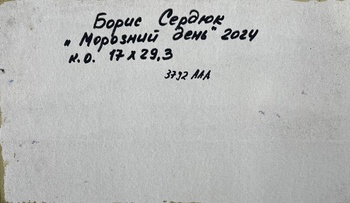 Борис Сердюк
"Морозний день" 2024
к.о. 17х29,3
3792 ААА